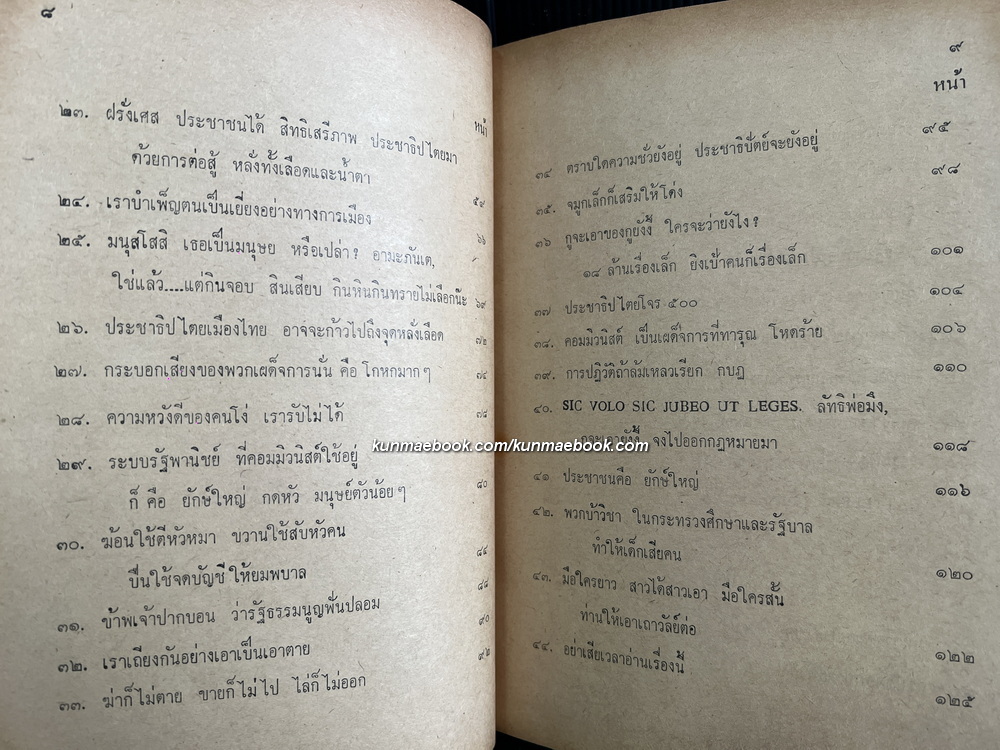 ๘
หน้า
๒๓. ฝรั่งเศส ประชาชนได้ สิทธิเสรีภาพ ประชาธิปไตยมา
ด้วยการต่อสู้ หลั่งทั้งเลือดและน้ำตา ๕๙
๒๔. เราบำเพ็ญตนเป็นเยี่ยงอย่างทางการเมือง ๖๖
๒๕. มนุสโสสิ เธอเป็นมนุษย หรือเปล่า? อามะภันเต,
ใช่แล้ว....แต่กินจอบ สินเสียบ กินหินกินทรายไม่เลือกน๊ะ ๖๙
๒๖. ประชาธิปไตยเมืองไทย อาจจะก้าวไปถึงจุดหลั่งเลือด ๗๒
๒๗. กระบอกเสียงของพวกเผด็จการนั่น คือ โกหกมากๆ ๗๔
๒๘. ความหวังดีของคนโง่ เรารับไม่ได้ ๗๘
๒๙. ระบบรัฐพานิชย์ ที่คอมมิวนิสต์ใช้อยู่
ก็ คือ ยักษ์ใหญ่ กดหัว มนุษย์ตัวน้อยๆ ๘๐
๓๐. ฆ้อนใช้ตีหัวหมา ขวานใช้สับหัวคน
ปืนใช้จดบัญชีให้ยมพบาล ๘๔
๓๑. ข้าพเจ้าปากบอน ว่ารัฐธรรมนูญพั่นปลอม ๘๘
๓๒. เราเถียงกันอย่างเอาเป็นเอาตาย ๙๐
๓๓. ฆ่าก็ไม่ตาย ขายก็ไม่ไป ไล่ก็ไม่ออก ๙๒
๙
หน้า
๓๔ ตราบใดความชั่วยังอยู่ ประชาธิปัตย์จะยังอยู่ ๙๕
๓๕. จมูกเล็กก็เสริมให้โด่ง ๙๘
๓๖ กูจะเอาของกูยังงี้ ใครจะว่ายังไง?
๑๘ ล้านเรื่องเล็ก ยิงเป้าคนก็เรื่องเล็ก ๑๐๑
๓๗ ประชาธิปไตยโจร ๕๐๐ ๑๐๔
๓๘. คอมมิวนิสต์ เป็นเผด็จการที่ทารุณ โหดร้าย ๑๐๖
๓๙. การปฏิวัติถ้าล้มเหลวเรียก กบฎ ๑๑๐
๔๐. SIC VOLO SIC JUBEO UT LEGES. ลัทธิพ่อมึง,
จงไปออกกฎหมายมา ๑๑๘
๔๑ ประชาชนคือ ยักษ์ใหญ่ ๑๑๖
๔๒. พวกบ้าวิชา ในกระทรวงศึกษาและรัฐบาล
ทำให้เด็กเสียคน ๑๒๐
๔๓. มือใครยาว สาวได้สาวเอา มือใครสั้น
ท่านให้เอาเถาวัลย์ต่อ ๑๒๒
๔๔. อย่าเสียเวลาอ่านเรื่องนี้ ๑๒๕
kunmaebook.com/kunmaebook.com